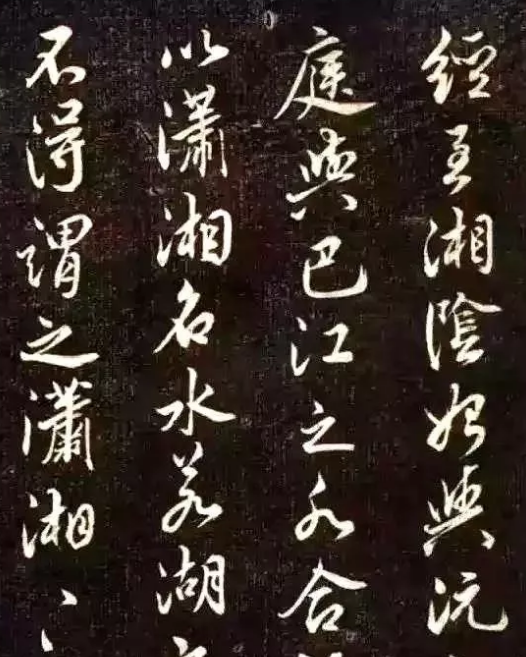 經至湘陰始與沅
庭與巴江之水合
以瀟湘名水若湖
不得謂之瀟湘